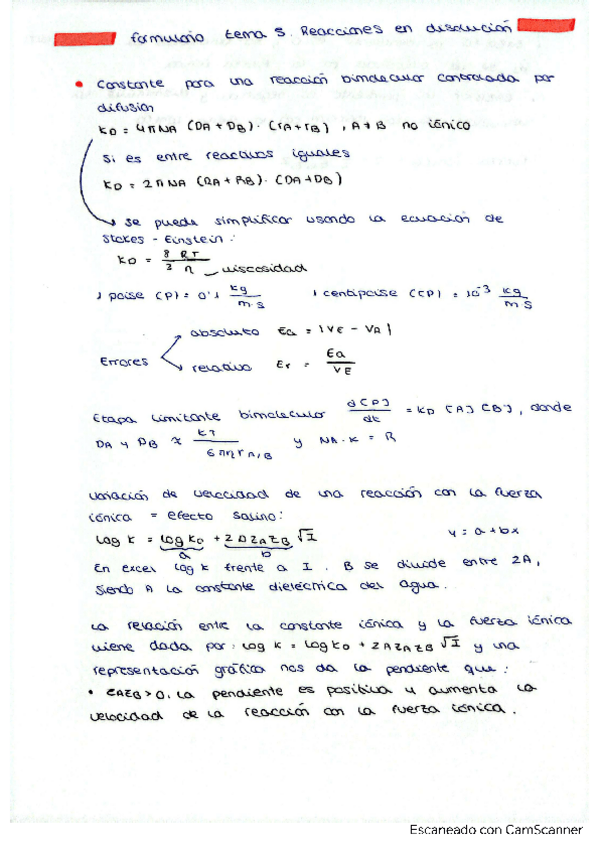 formulario tema 5. Reacciones en disolución
• Constante para una reacción bimolecular controlada por
difusión
KD = 4π NA (DA + DB) · (rA + rB) , A ≠ B no iónico
Si es entre reactivos iguales
KD = 2π NA (RA + RB) · (DA + DB)
→ se puede simplificar usando la ecuación de
Stokes - Einstein:
KD = 8/3 RT/η viscosidad
1 poise (P) = 0'1 kg/m·s 1 centipoise (cP) = 10⁻³ kg/m·s
absoluto Ea = |VE - VA|
Errores
relativo Er = Ea/VE
Etapa limitante bimolecular d[P]/dt = KD [A] [B], donde
DA y DB ≈ KT/6πη rA/B y NA · K = R
Variación de velocidad de una reacción con la fuerza
iónica = efecto salino:
log K = log K0 + 2DZAZB √I y = a + bx
a b
En excel log K frente a I. B se divide entre 2A,
siendo A la constante dieléctrica del agua.
La relación entre la constante iónica y la fuerza iónica
viene dada por: log K = log K0 + 2AZAZB √I y una
representación gráfica nos da la pendiente que:
• ZAZB > 0. La pendiente es positiva y aumenta la
velocidad de la reacción con la fuerza iónica.
Escaneado con CamScanner